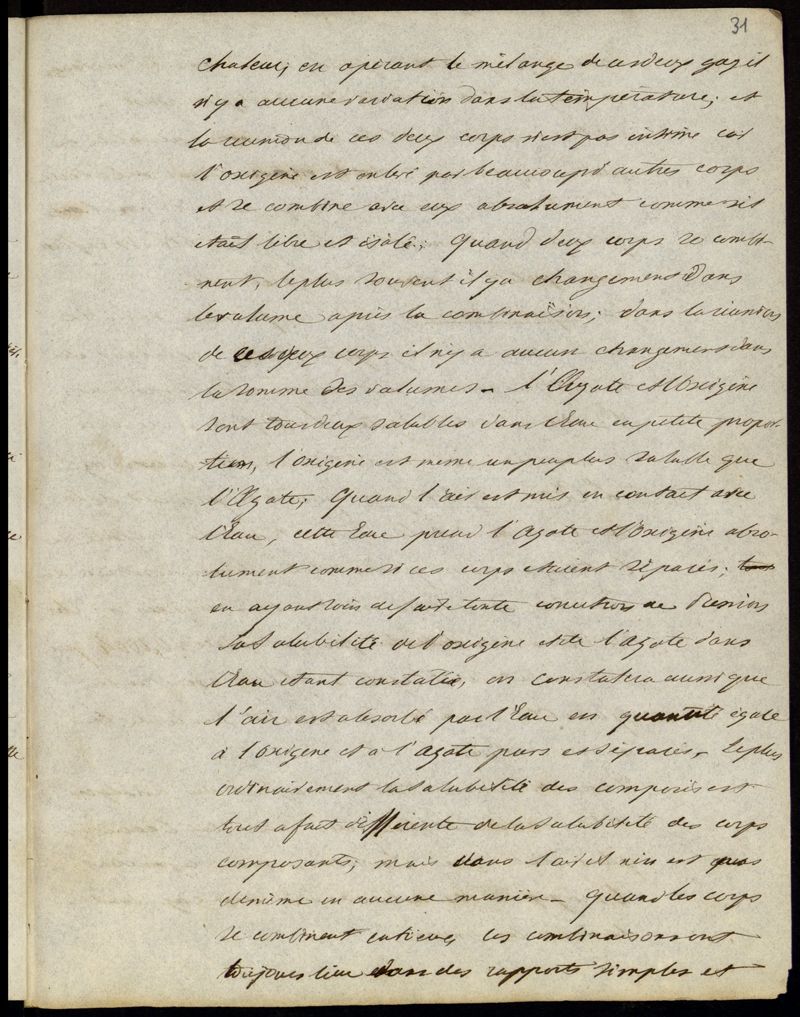 31
chaleur; en opérant le mélange de ces deux gaz il
n'y a aucune variation dans la température; et
la reunion de ces deux corps n'est pas intime car
l'oxigène est enlevé par beaucoup d'autres corps
et se combine avec eux absolument comme s'il
était libre et isolé; Quand deux corps se combi-
nent, le plus souvent il y a changement dans
le volume après la combinaison; dans la réunion
de ces deux corps il n'y a aucun changement dans
la somme des volumes - l'Azote et l'Oxigène
sont tous deux solubles dans l'Eau en petite propor-
tion, l'oxigène est même un peu plus soluble que
l'Azote; Quand l'air est mis en contact avec
l'Eau, cette Eau prend l'Azote et l'Oxigène abso-
lument comme si ces corps etaient séparés;
en ayant soin de faire de pression
la solubilité de l'oxigène et de l'azote dans
l'Eau étant constatée, on constatera aussi que
l'air est absorbé par l'Eau en quantité égale
à l'Oxigène et a l'Azote purs et séparés - Le plus
ordinairement la Solubilité des composés est
tout a fait différente de la Solubilité des corps
composants; mais dans l'air il n'en est pas
de même en aucune manière - Quand les corps
se combinent entr'eux, ces combinaisons ont
toujours lieu dans des rapports simples et